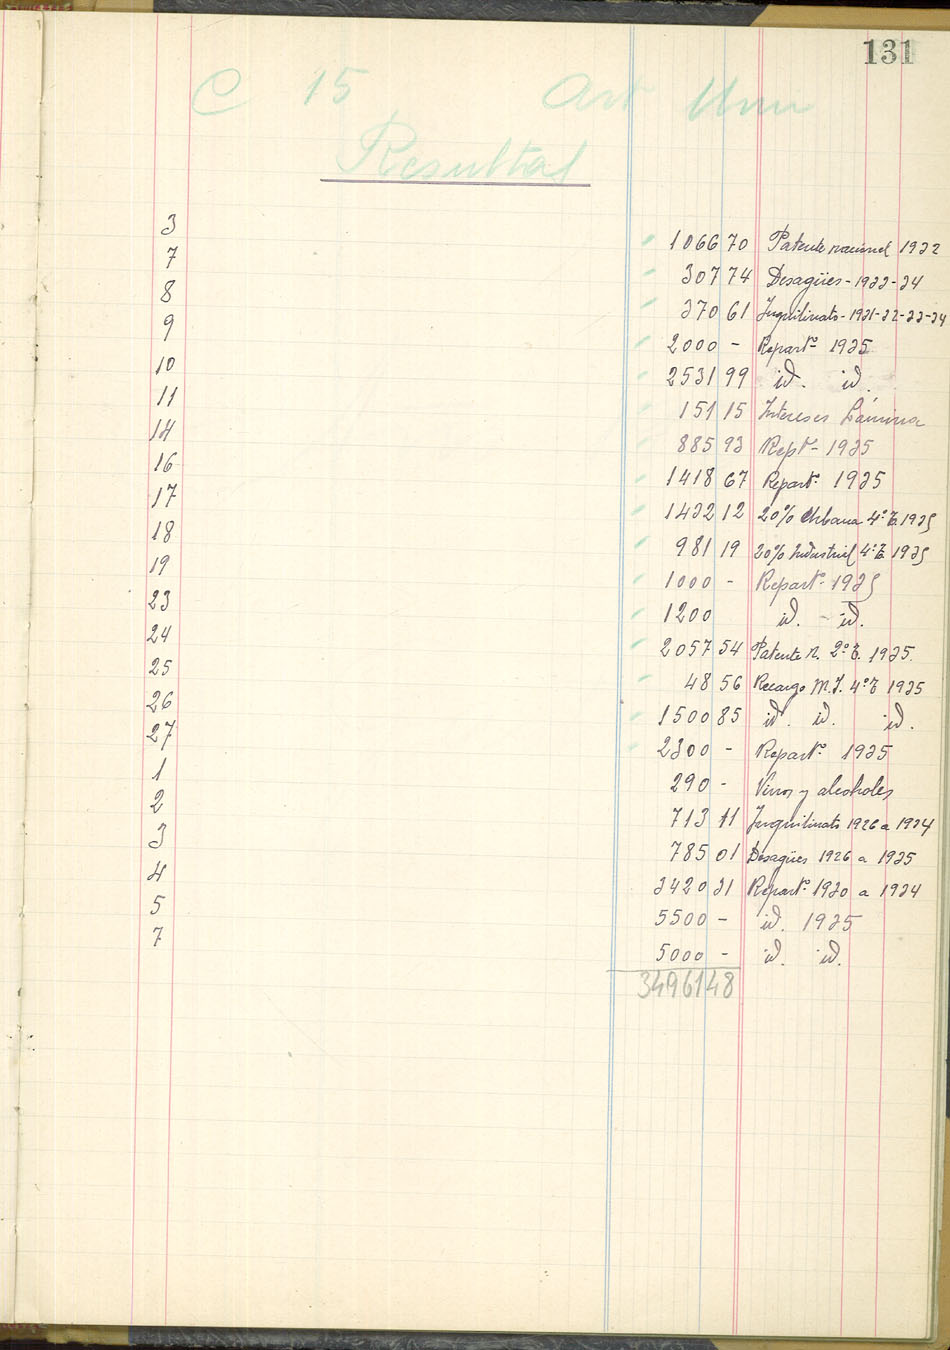 131
C 15 Art Unic
Resultas
3 1066 70 Patente nacional 1932
7 307 74 Desagües - 1933-34
8 370 61 Inquilinato - 1931-32-33-34
9 2000 - Repart.º 1935
10 2531 99 id. id.
11 151 15 Intereses Lámina
14 885 93 Rept- 1935
16 1418 67 Repart.º 1935
17 1432 12 20% Urbana 4º T. 1935
18 981 19 20% Industrial 4º T. 1935
19 1000 - Repart.º 1935
23 1200 id. - id.
24 2057 54 Patente N. 2º T. 1935.
25 48 56 Recargo M.I. 4º T 1935
26 1500 85 id. id. id.
27 2300 - Repart.º 1935
1 290 - Vinos y alcoholes
2 713 11 Inquilinato 1926 a 1934
3 785 01 Desagües 1926 a 1935
4 3420 31 Repart.º 1930 a 1934
5 5500 - id. 1935
7 5000 - id. id.
34961 48